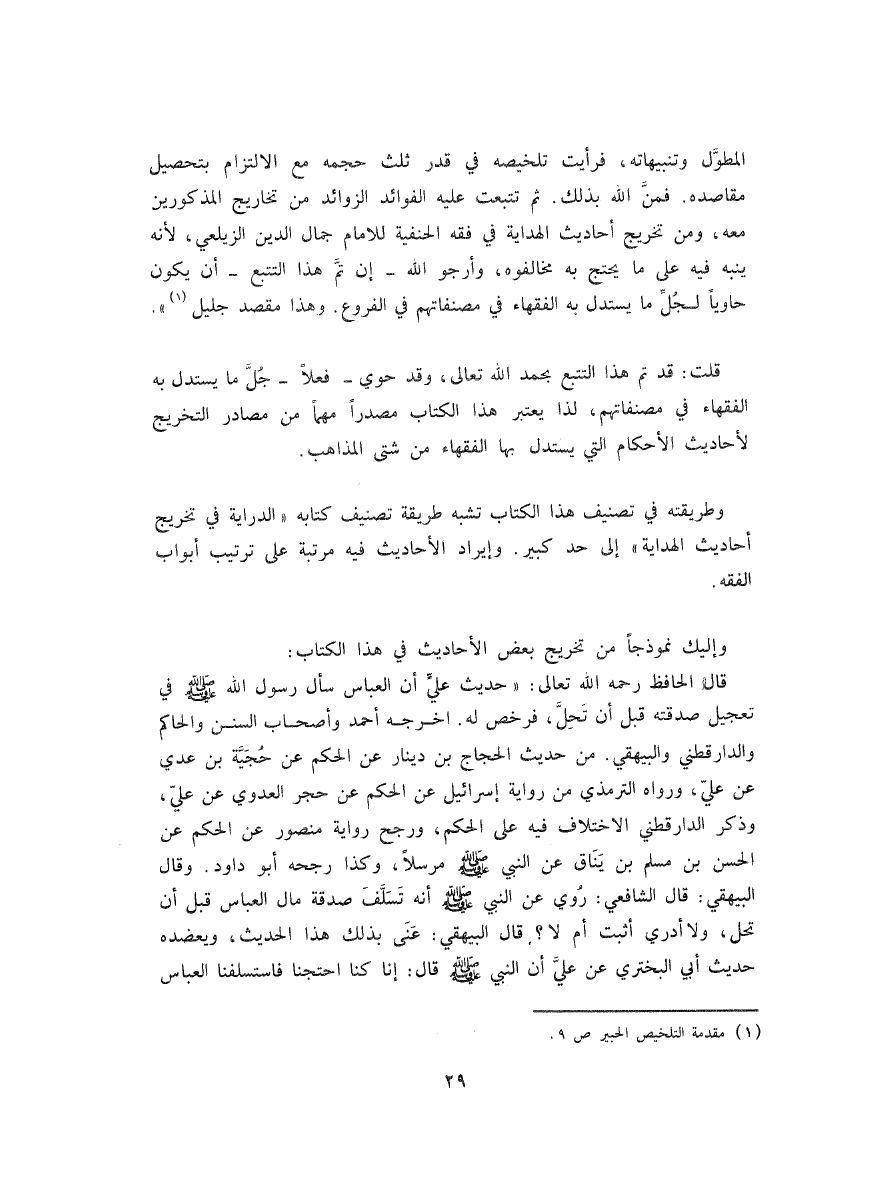 المطوَّل وتنبيهاته، فرأيت تلخيصه في قدر ثلث حجمه مع الالتزام بتحصيل
مقاصده. فمنَّ الله بذلك. ثم تتبعت عليه الفوائد الزوائد من تخاريج المذكورين
معه، ومن تخريج أحاديث الهداية في فقه الحنفية للامام جمال الدين الزيلعي، لأنه
ينبه فيه على ما يحتج به مخالفوه، وأرجو الله ـ إن تمَّ هذا التتبع ـ أن يكون
حاوياً لـجُلِّ ما يستدل به الفقهاء في مصنفاتهم في الفروع. وهذا مقصد جليل (١)».
قلت: قد تم هذا التتبع بحمد الله تعالى، وقد حوي ـ فعلاً ـ جُلَّ ما يستدل به
الفقهاء في مصنفاتهم، لذا يعتبر هذا الكتاب مصدراً مهماً من مصادر التخريج
لأحاديث الأحكام التي يستدل بها الفقهاء من شتى المذاهب.
وطريقته في تصنيف هذا الكتاب تشبه طريقة تصنيف كتابه «الدراية في تخريج
أحاديث الهداية» إلى حد كبير. وإيراد الأحاديث فيه مرتبة على ترتيب أبواب
الفقه.
وإليك نموذجاً من تخريج بعض الأحاديث في هذا الكتاب:
قال الحافظ رحمه الله تعالى: «حديث عليٍّ أن العباس سأل رسول الله ﷺ في
تعجيل صدقته قبل أن تَحِلَّ، فرخص له. اخـرجـه أحمد وأصحـاب السنـن والحاكم
والدارقطني والبيهقي. من حديث الحجاج بن دينار عن الحكم عن حُجَيَّة بن عدي
عن عليّ، ورواه الترمذي من رواية إسرائيل عن الحكم عن حجر العدوي عن عليّ،
وذكر الدارقطني الاختلاف فيه على الحكم، ورجح رواية منصور عن الحكم عن
الحسن بن مسلم بن يَنَاق عن النبي ﷺ مرسلاً، وكذا رجحه أبو داود. وقال
البيهقي: قال الشافعي: رُوي عن النبي ﷺ أنه تَسَلَّفَ صدقة مال العباس قبل أن
تحل، ولا أدري أثبت أم لا؟ قال البيهقي: عَنَى بذلك هذا الحديث، ويعضده
حديث أبي البختري عن عليَّ أن النبي ﷺ قال: إنا كنا احتجنا فاستسلفنا العباس
(١) مقدمة التلخيص الحبير ص ٩.
٢٩